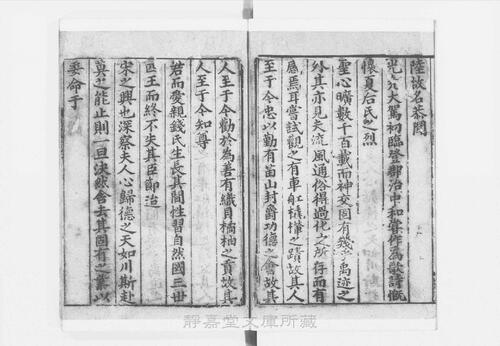 陸放名

光九大駕初臨登部治中和䧺作為歌詩慨
懷夏后氏之烈
聖心曠數千百載而神交固有幾乎禹迹之
外其亦見夫流風通俗得過化之所存而有
為焉耳嘗試觀之有車舡橇檋之蹟故其人
至于今忠以勤有苗山封爵功德之會故其
人至于今勸於為善有織貝橘柚之貢故其
人至于今知尊
君而愛親錢氏生長其間性習自然國三世
四王而終不失其臣節迨
宋之興也深察夫人心歸德之天如川斯赴
莫之能止則一旦決然舍去其固有之業以
委命于
靜嘉堂文庫所藏